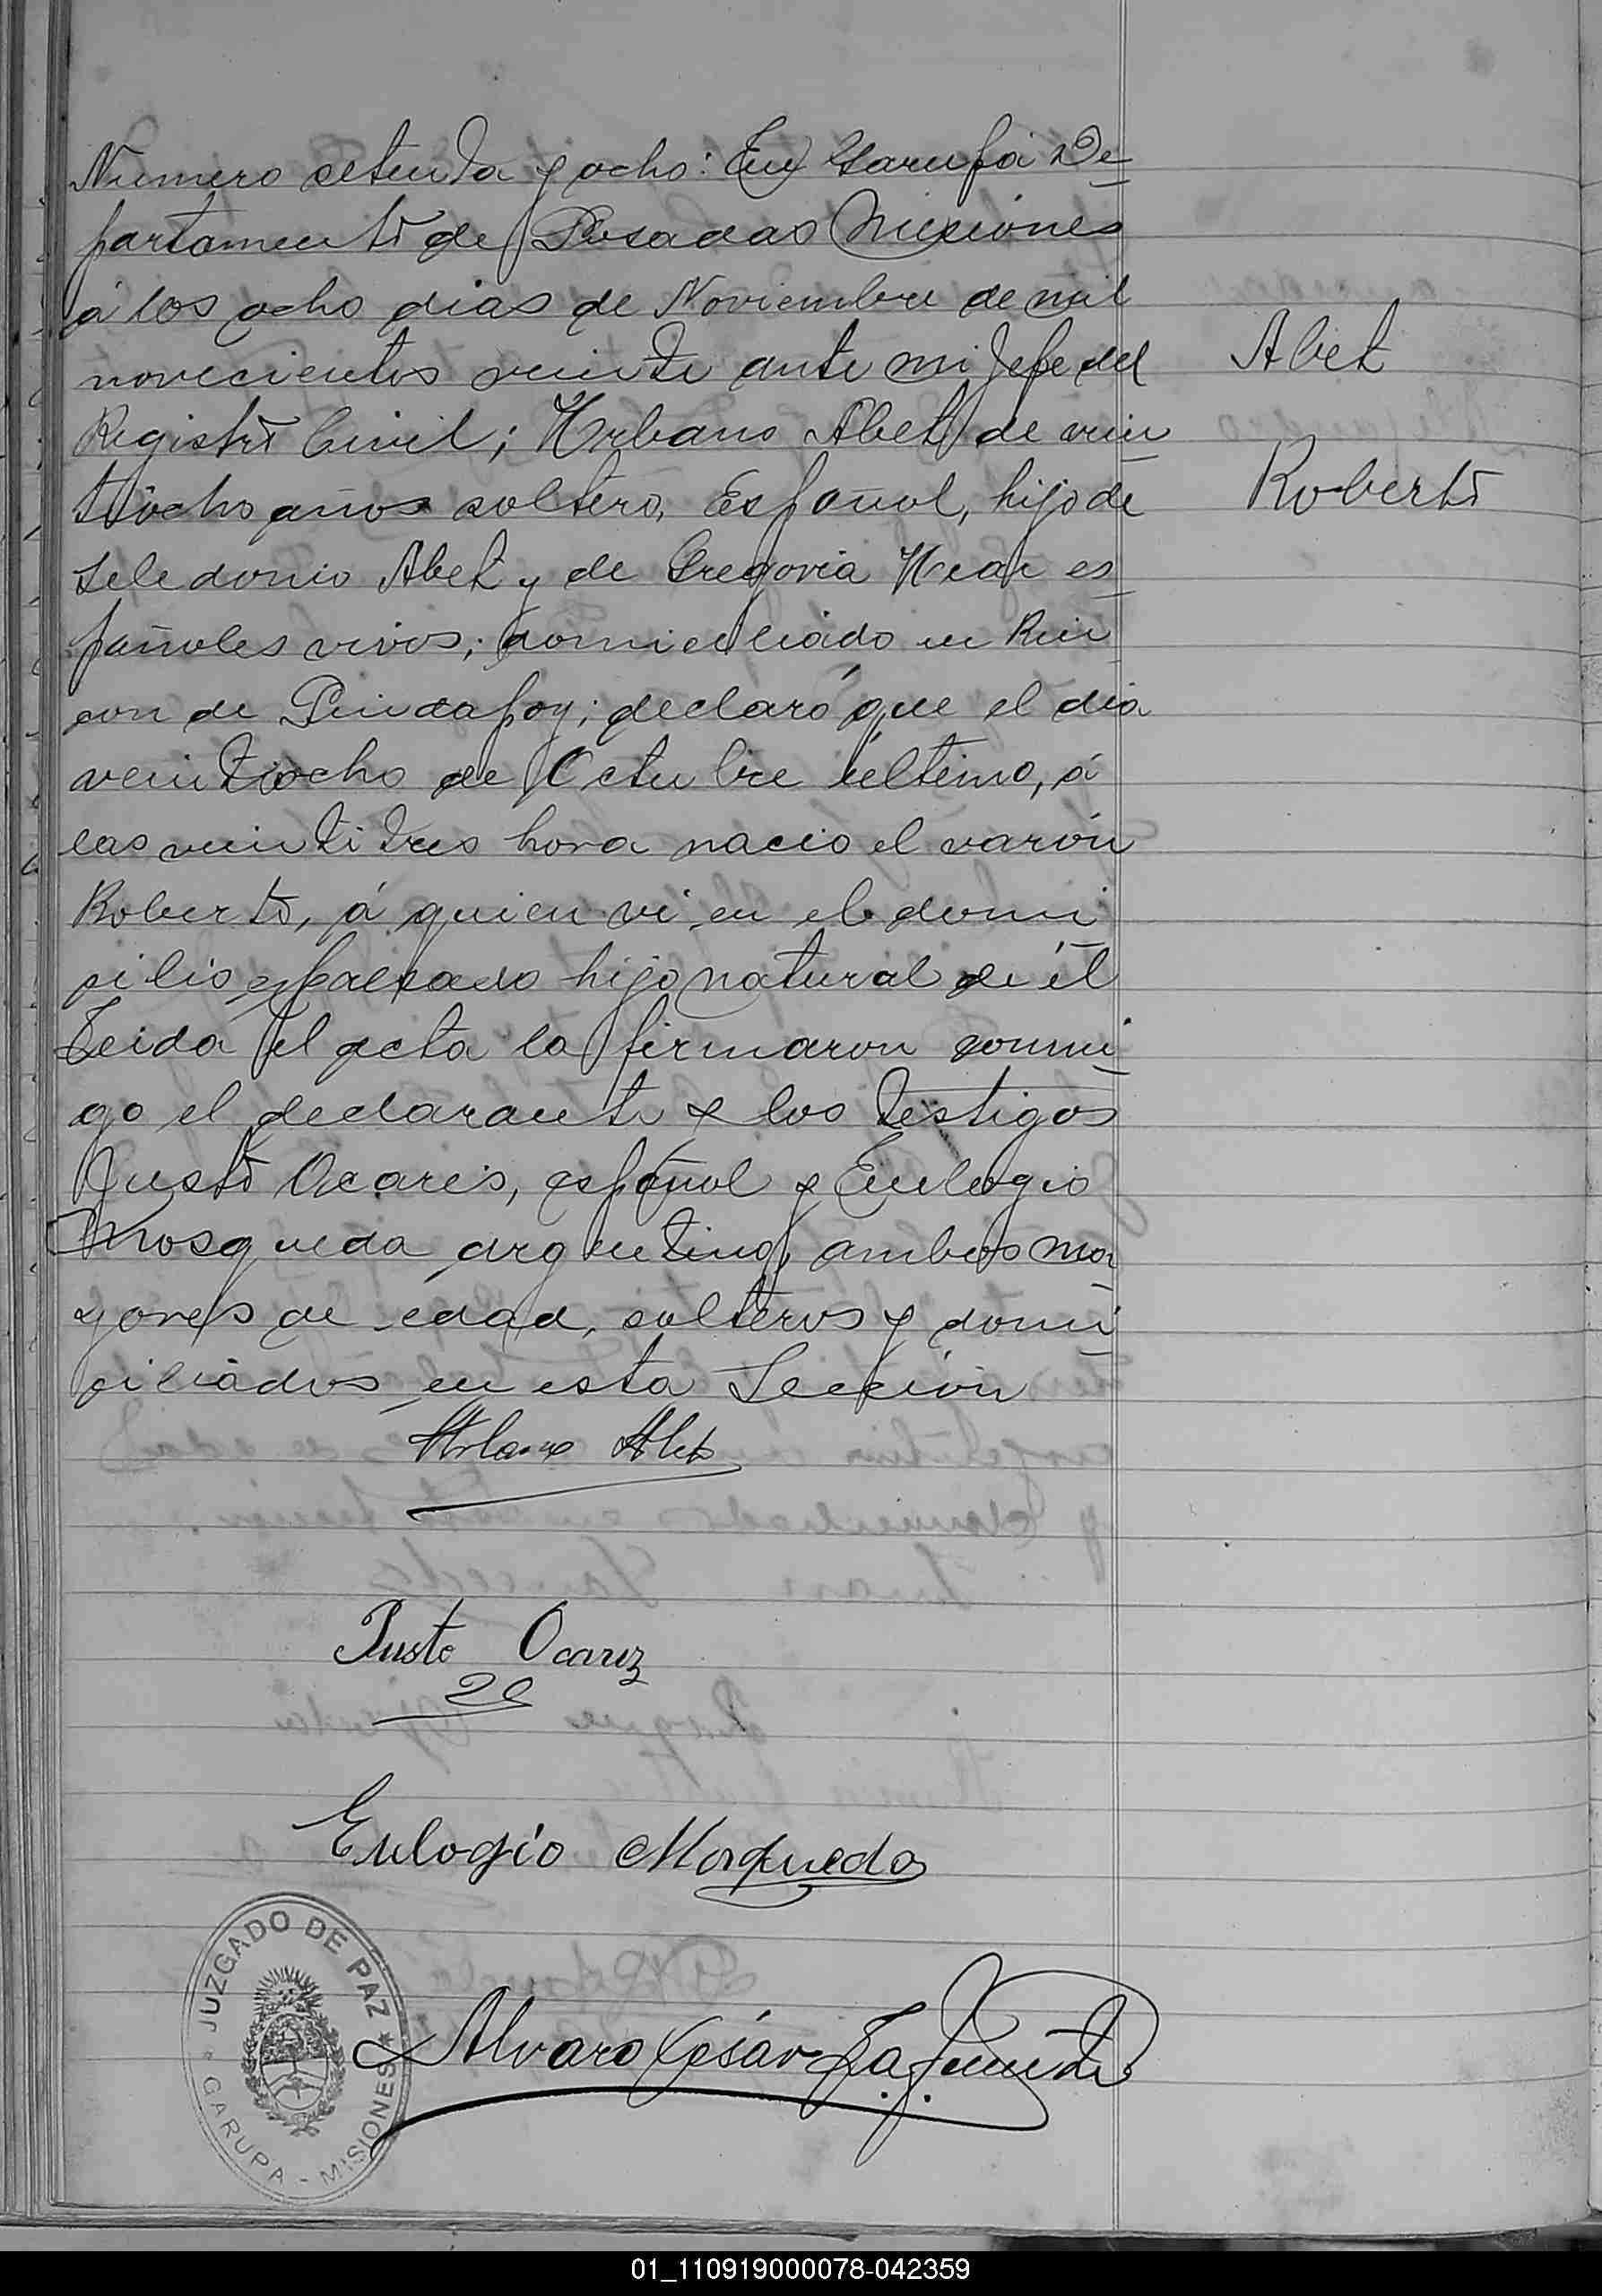 Numero setenta y ocho: En Garupá De
partamento de Posadas Misiones
á los ocho dias de Noviembre de mil
novecientos veinte ante mi Jefe del
Registro Civil; Urbano Abet de vein
tiocho años soltero, Español, hijo de
Seledonio Abet y de Gregoria es
pañoles vivos; domiciliado en Rin
con de Pindapoy; declaró que el dia
veintiocho de Octubre último, á
las veintitres hora nacio el varón
Roberto, á quien vi en el domi
cilio expresado hijo natural de él
Leida el acta la firmaron conmi
go el declarante y los testigos
Justo Ocaris, español y Eulogio
Mosqueda argentino, ambos ma
yores de edad, solteros y domi
ciliados en esta Sección
Abet
Roberto
Urbano Abet
Justo Ocariz
Eulogio Mosqueda
JUZGADO DE PAZ
GARUPA - MISIONES
Alvaro César Lafuente
01_110919000078-042359